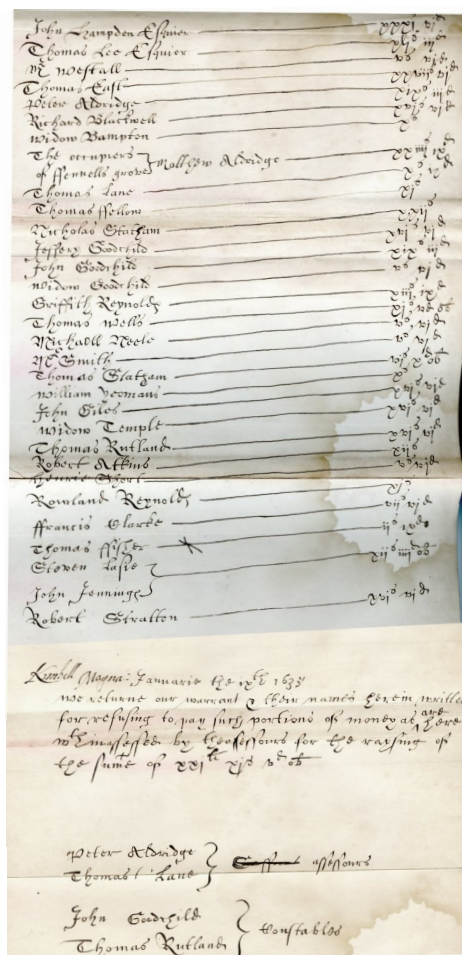 John Hampden Esquier xxxi s vi d
Thomas Lee Esquier xli s iii d
Mr Westall v s vi d
Thomas East xxviii s vi d
Peter Aldridge xix s iii d
Richard Blackwell xvi s vi d
Widow Bampton x s
The occupiers
of ffennells grove Matthew Aldridge xxiiii s ix d
Thomas Lane xi s
Thomas ffellow xxii s
Nicholas Statham xvi s vi d
Jeffery Goodchild xix s iii d
John Goodchild v s vi d
Widow Goodchild
Griffith Reynolds xiii s ix d
Thomas Wells xi s
Michaell Neele v s vi d
Mr Smith
Thomas Statham
William Yeomans xvi s vi d
John Giles xvi s vi d
Widow Temple xvi s vi d
Thomas Rutland xii s
Robert Atkins v s vi d
Henrie Short
Rowland Reynolds xi s
ffrancis Clarke vii s vi d
Thomas ffisher ii s ix d
Steven Lasie xii s iiii d ob
John Jennings
Robert Stratton xvi s vi d
Kymbell Magna: Januarie the ixth 1635
we returne our warrant & their names herein written
for refusing to pay such portions of money as are here
assessed by the Assessours for the raysing of
the sume of xxi li xjs v d ob
Peter Aldridge
Thomas Lane assessours
John Goodchild
Thomas Rutland Constables